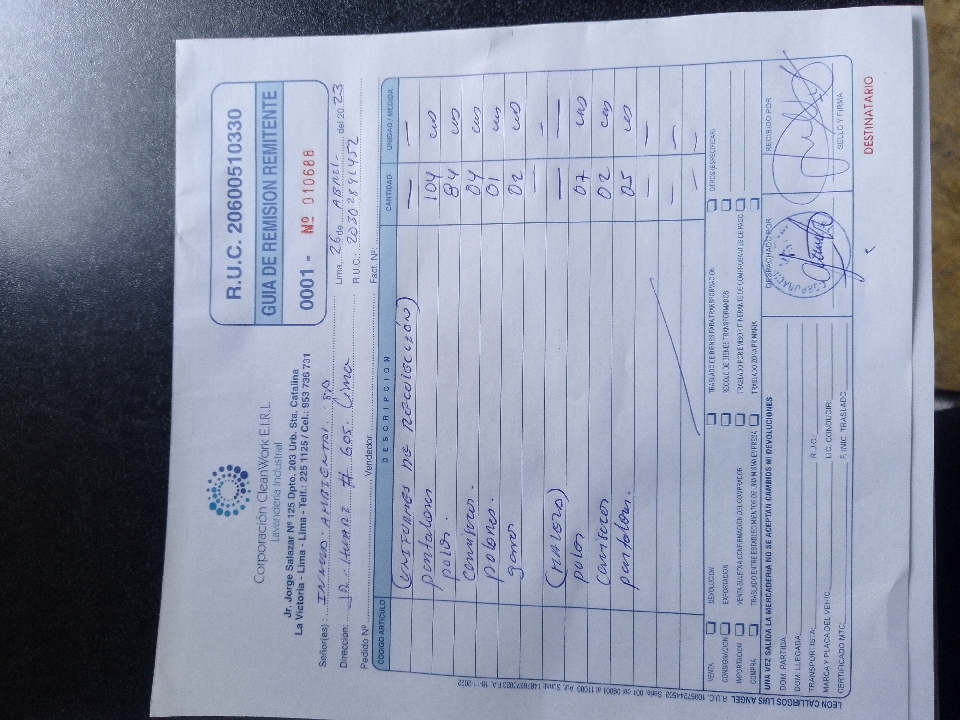 Corporación CleanWork E.I.R.L.
Lavandería Industrial
Jr. Jorge Salazar Nº 125 Dpto. 203 Urb. Sta. Catalina
La Victoria - Lima - Lima - Telf.: 225 1125 / Cel.: 953 736 731
R.U.C. 20600510330
GUIA DE REMISION REMITENTE
0001 - Nº 010688
Señor(es): INNOVA AMBIENTAL SA Lima, 26 de ABRIL del 2023
Dirección: Jr. Huaraz # 605. Lima R.U.C.: 20302891452
Pedido Nº Vendedor Fact. Nº:
CODIGO ARTICULO DESCRIPCION CANTIDAD UNIDAD / MEDIDA
(UNIFORMES DE RECOLECCIÓN) — —
pantalones 104 uds
polos. 84 uds
camiseros. 04 uds
polones. 01 uds
gorros 02 uds
— —
(MALEZA) — —
polos 07 uds
camiseros 02 uds
pantalones. 05 uds
VENTA DEVOLUCION TRASLADO DE BIENES PARA TRANSFORMACION OTROS (ESPECIFICAR)
CONSIGNACION EXPORTACION RECOJO DE BIENES TRANSFORMADOS
IMPORTACION VENTA SUJETA A CONFIRMACION DEL COMPRADOR TRASLADO POR EMISOR ITINERANTE DE COMPROBANTES DE PAGO
COMPRA TRASLADO ENTRE ESTABLECIMIENTOS DE UNA MISMA EMPRESA TRASLADO ZONA PRIMARIA
UNA VEZ SALIDA LA MERCADERIA NO SE ACEPTAN CAMBIOS NI DEVOLUCIONES
DOM. PARTIDA
DOM. LLEGADA
TRANSPORTISTA: R.U.C.:
MARCA Y PLACA DEL VEHIC. LIC. CONDUCIR:
CERTIFICADO MTC: F. INIC. TRASLADO
DESPACHADO POR
RECIBIDO POR
SELLO Y FIRMA
DESTINATARIO
LEON CALLIRGOS LUIS ANGEL